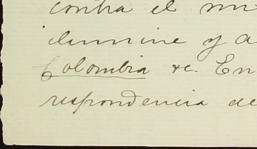 contra el mi
ilumine y a
Colombia &c. En
respondencia de